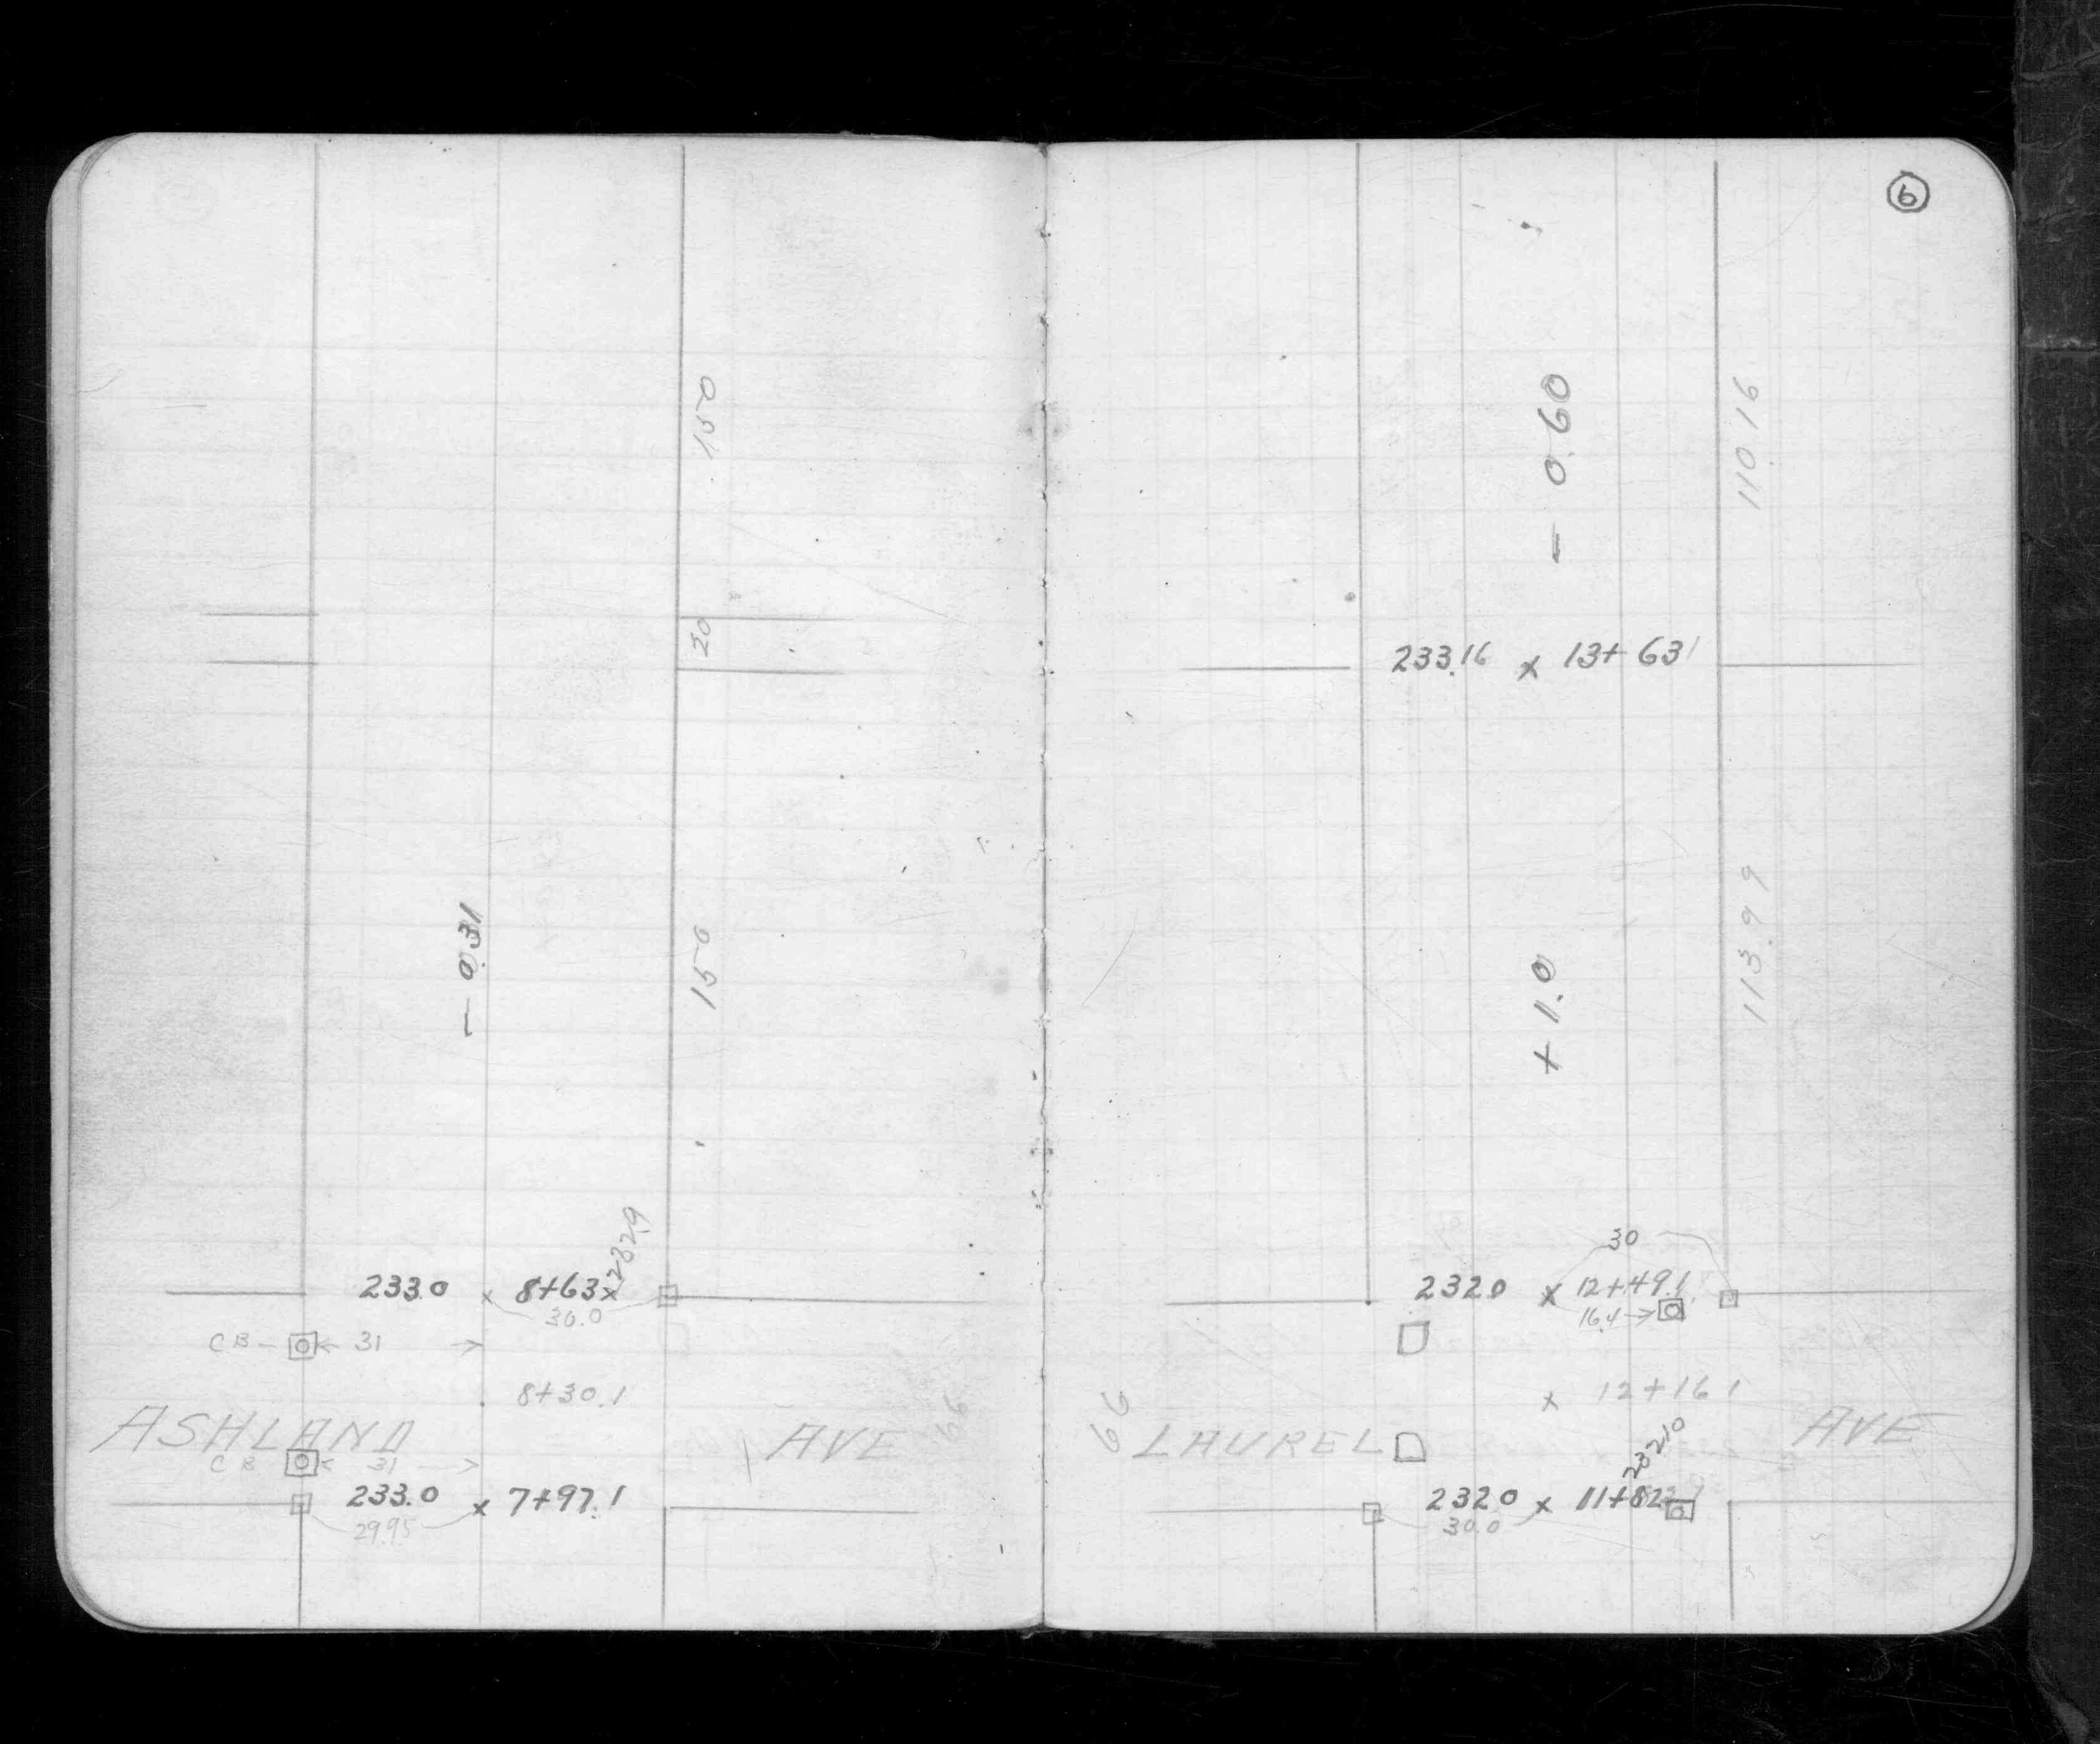 150
20
150
- 0.31
232.9
233.0 x 8+63 x
30.0
CB - 31
8+30.1
ASHLAND AVE 66
CB 31
233.0 x 7+97.1
29.95
6
- 0.60
110.16
233.16 x 13+63.1
113.99
+ 1.0
30
232.0 x 12+49.1
16.4
x 12+16.1
66 LAUREL AVE
232.10
232.0 x 11+82
30.0